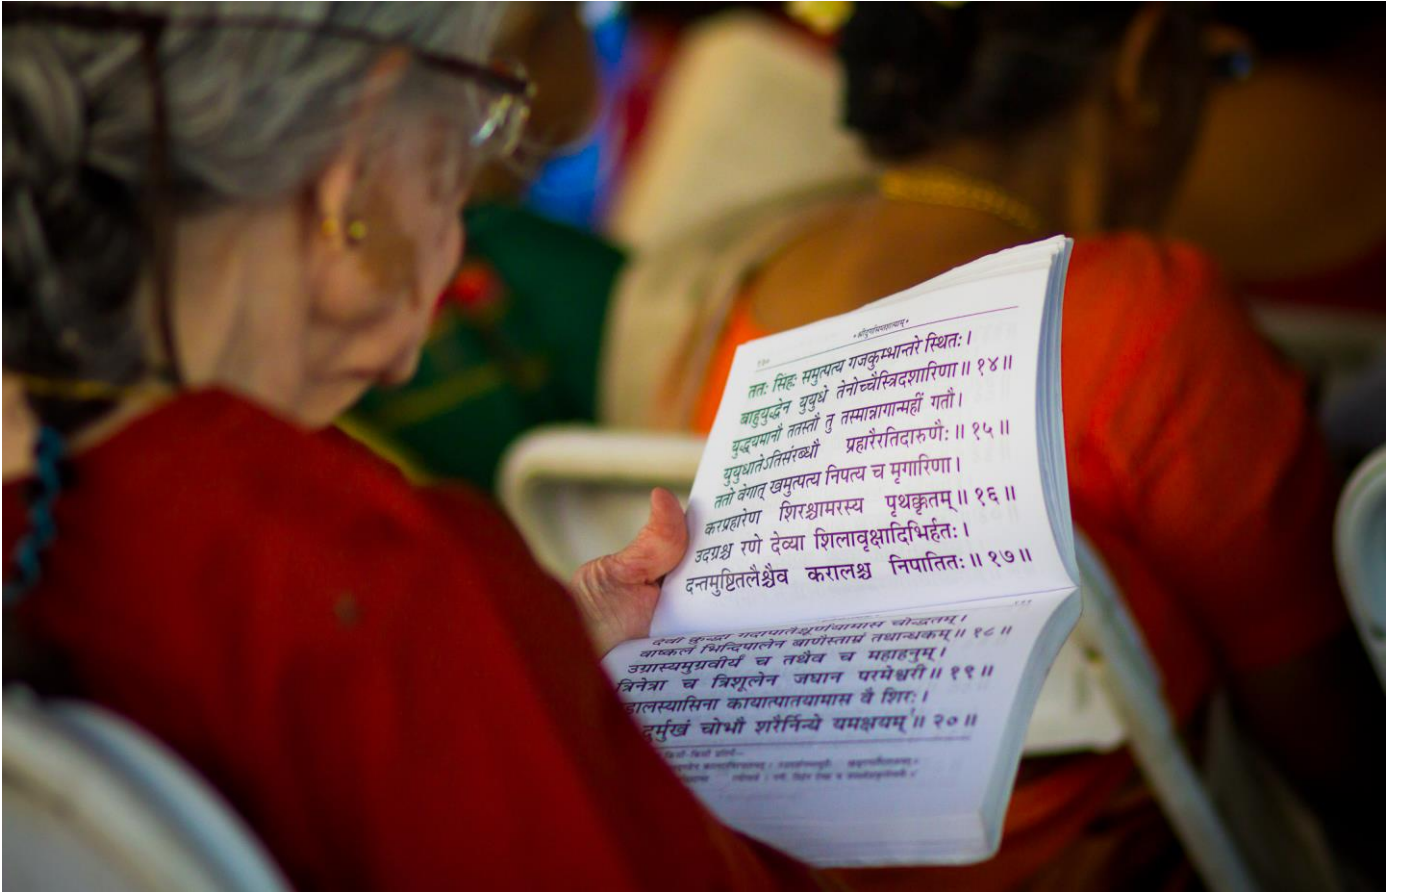 ११०
* श्रीदुर्गासप्तशत्याम् *
ततः सिंहः समुत्पत्य गजकुम्भान्तरे स्थितः।
बाहुयुद्धेन युयुधे तेनोच्चैस्त्रिदशारिणा॥ १४॥
युद्ध्यमानौ ततस्तौ तु तस्मान्नागान्महीं गतौ।
युयुधातेऽतिसंरब्धौ प्रहारैरतिदारुणैः॥ १५॥
ततो वेगात् खमुत्पत्य निपत्य च मृगारिणा।
करप्रहारेण शिरश्चामरस्य पृथक्कृतम्॥ १६॥
उदग्रश्च रणे देव्या शिलावृक्षादिभिर्हतः।
दन्तमुष्टितलैश्चैव करालश्च निपातितः॥ १७॥
देवी क्रुद्धा गदापातैश्चूर्णयामास चोद्धतम्।
बाष्कलं भिन्दिपालेन बाणैस्ताम्रं तथान्धकम्॥ १८॥
उग्रास्यमुग्रवीर्यं च तथैव च महाहनुम्।
त्रिनेत्रा च त्रिशूलेन जघान परमेश्वरी॥ १९॥
डालस्यासिना कायात्पातयामास वै शिरः।
दुर्मुखं चोभौ शरैर्निन्ये यमक्षयम्॥ २०॥